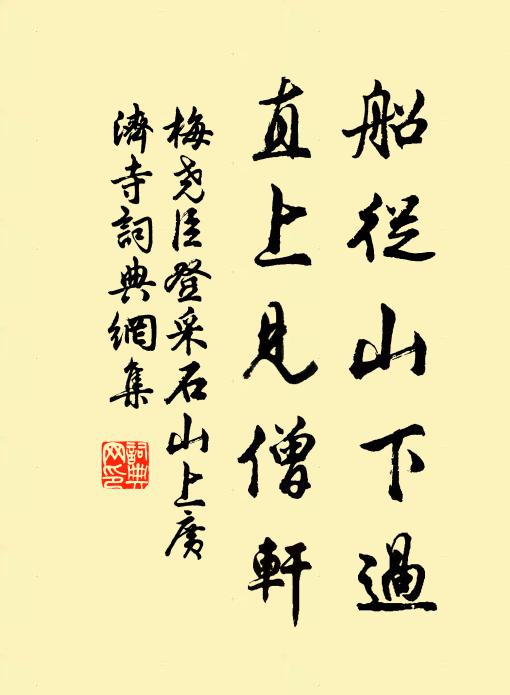 船從山下過
直上見僧軒
梅堯臣登采石山上廣
濟寺詞典網集
詞典
网印